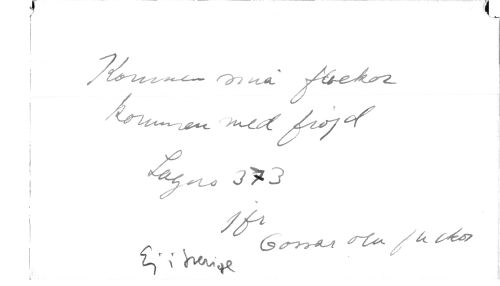 Kommen små flockor
kommen med fröjd
Lagus 373
jfr
Gossar och flickor
Ej i Sverige